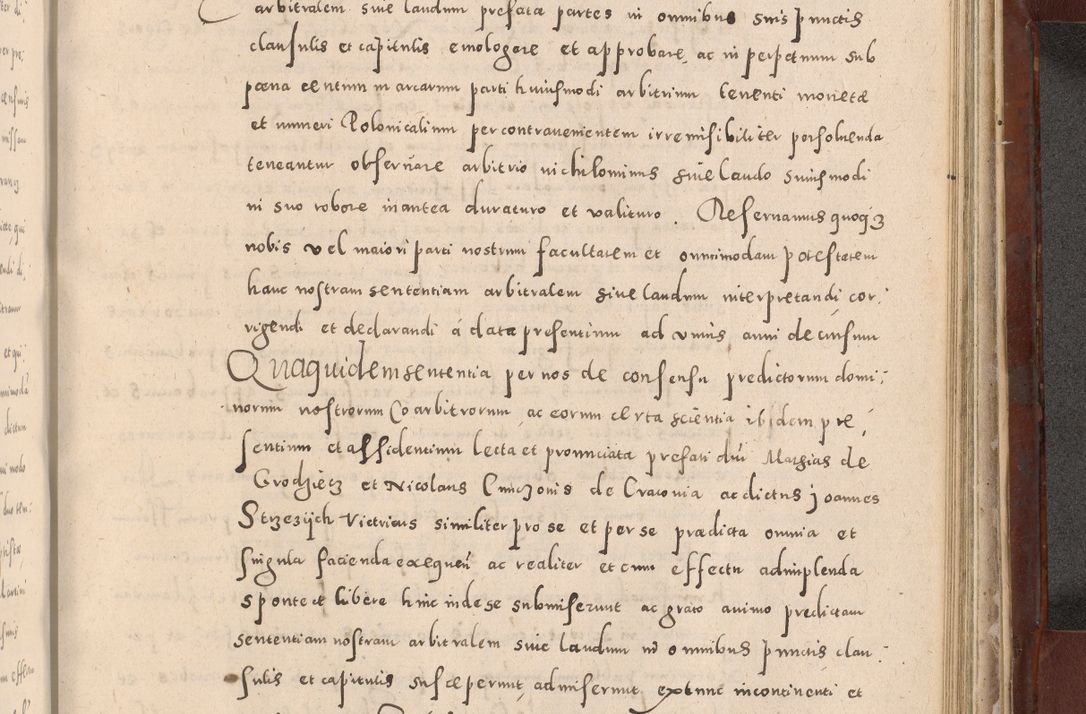 arbitralem sive laudum prefatae partes in omnibus suis punctis
clausulis et capitulis emologare et approbare, ac in perpetuum sub
poena centum marcarum parti huiusmodi arbitrium tenenti monetae
et numeri Polonicalium per contravenientem irremisibiliter persolvenda
teneantur observare arbitrio nichilominus sive laudo huiusmodi
in suo robore in antea duraturo et valituro. Reservamus quoq3
nobis vel maiori parti nostrum facultatem et omnimodam potestatem
hanc nostram sententiam arbitralem sive laudum interpretandi cor,
rigendi et declarandi á data presentium ad unius anni decursum
Quaquidem sententia per nos de consensu predictorum domi,
norum nostrorum Coarbitrorum ac eorum certa scientia ibidem pre,
sentium et assidentium lecta et pronunciata prefati dni Mathias de
Grodziecz et Nicolaus Cunczonis de Cracovia ac dictus joannes
Strzezijch Victricus similiter pro se et per se praedicta omnia et
singula facienda exequen ac realiter et cum effectu adimplenda
sponte et libere hinc inde se submiserunt ac grato animo predictam
sententiam nostram arbitralem sive laudum in omnibus punctis clau,
sulis et capitulis susceperunt, admiserunt, extunc incontinenti et